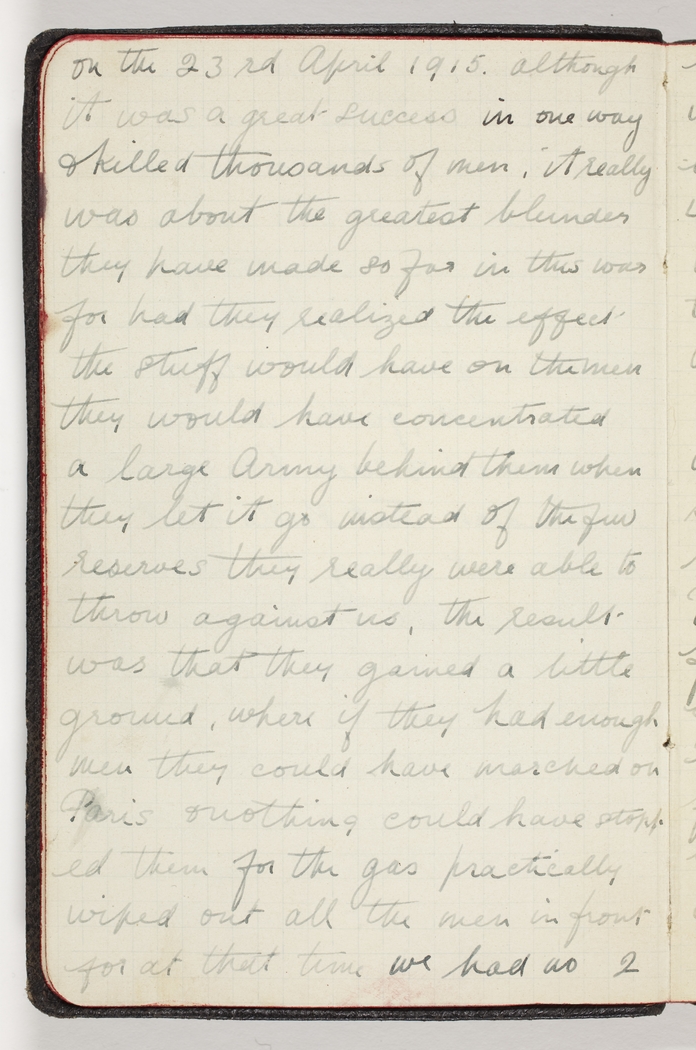 on the 23rd April 1915. although
it was a great success in one way
& killed thousands of men, it really
was about the greatest blunder
they have made so far in this war
for had they realized the effect
the stuff would have on the men
they would have concentrated
a large Army behind them when
they let it go instead of the few
reserves they really were able to
throw against us, the result
was that they gained a little
ground, where if they had enough
men they could have marched on
Paris & nothing could have stopp
ed them for the gas practically
wiped out all the men in front
for at that time we had no 2